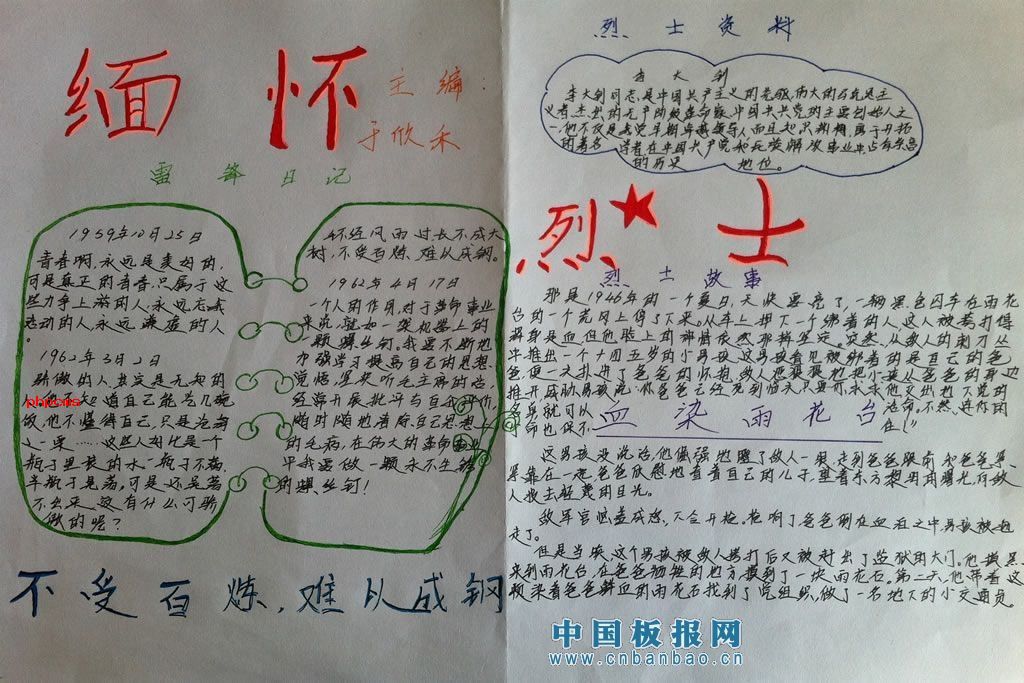 缅怀
主编：
于欣禾
雷锋日记
1959年10月25日
青春啊，永远是美好的，
可是真正的青春，只属于这
些力争上游的人，永远忘我
劳动的人，永远谦虚的人
。
1962年3月2日
骄傲的人，其实是无知的
人。 知道自己能吃几碗
饭，他不懂得自己只是沧海
之一粟……这些人好比是一个
瓶子里装的水，一瓶子不满，
半瓶子晃荡。可是还是晃
不出来，这有什么可骄
傲的呢？
不经风雨过，长不成大
树，不受百炼，难以成钢。
1962年4月17日
一个人的作用，对于革命事业
来说，就如一架机器上的
一颗螺丝钉。我要不断地
加强学习提高自己的思想
觉悟，坚决听毛主席的话，
经常开展批评与自我评价，
随时随地清除自己思想上
的毛病，在伟大的革命事业
中我要做一颗永不生锈
的螺丝钉！
phpcms
不受百炼，难以成钢
烈士资料
李大钊
李大钊同志，是中国共产主义的先驱，伟大的马克思主
义者，杰出的无产阶级革命家，中国共产党的主要创始人之
一，他不仅是
的著名 学者，在中国共产党和民族解放事业中，占有崇高
的历史 地位。
烈★士
烈士故事
那是1946年的一个夏日，天快要亮了，一辆黑色囚车在雨花
台的一个荒岗上停了下来。从车上押下一个绑着的人，这人被毒打得
浑身是血，但他脸上的神情依然那样坚定。突然，从敌人的刺刀丛
中推出一个十四五岁的小男孩，这男孩看见被绑着的是自己的爸
爸，便一头扑进了爸爸的怀抱。敌人恶狠狠地把小孩从爸爸的身边
推开，威胁男孩说：“你爸爸已经死到临头，只要你求求他交出地下党的
名单就可以 活命。不然，连你的
命也保不 住！”
血染雨花台
这男孩没说话，他倔强地瞪了敌人一眼，走到爸爸跟前，和爸爸紧
紧靠在一起，爸爸欣慰地看着自己的儿子，望着东方黎明的曙光，向敌
人投去轻蔑的目光。
敌军官恼羞成怒，下令开枪，枪响了，爸爸倒在血泊之中，男孩被赶
走了。
但是当夜，这个男孩被敌人毒打后又被赶出了监狱的大门。他摸黑
来到雨花台，在爸爸牺牲的地方摸到了一块雨花石。第二天，他带着这
颗染着爸爸鲜血的雨花石找到了党组织，做了一名地下的小交通员
中国板报网
www.cnbanbao.cn